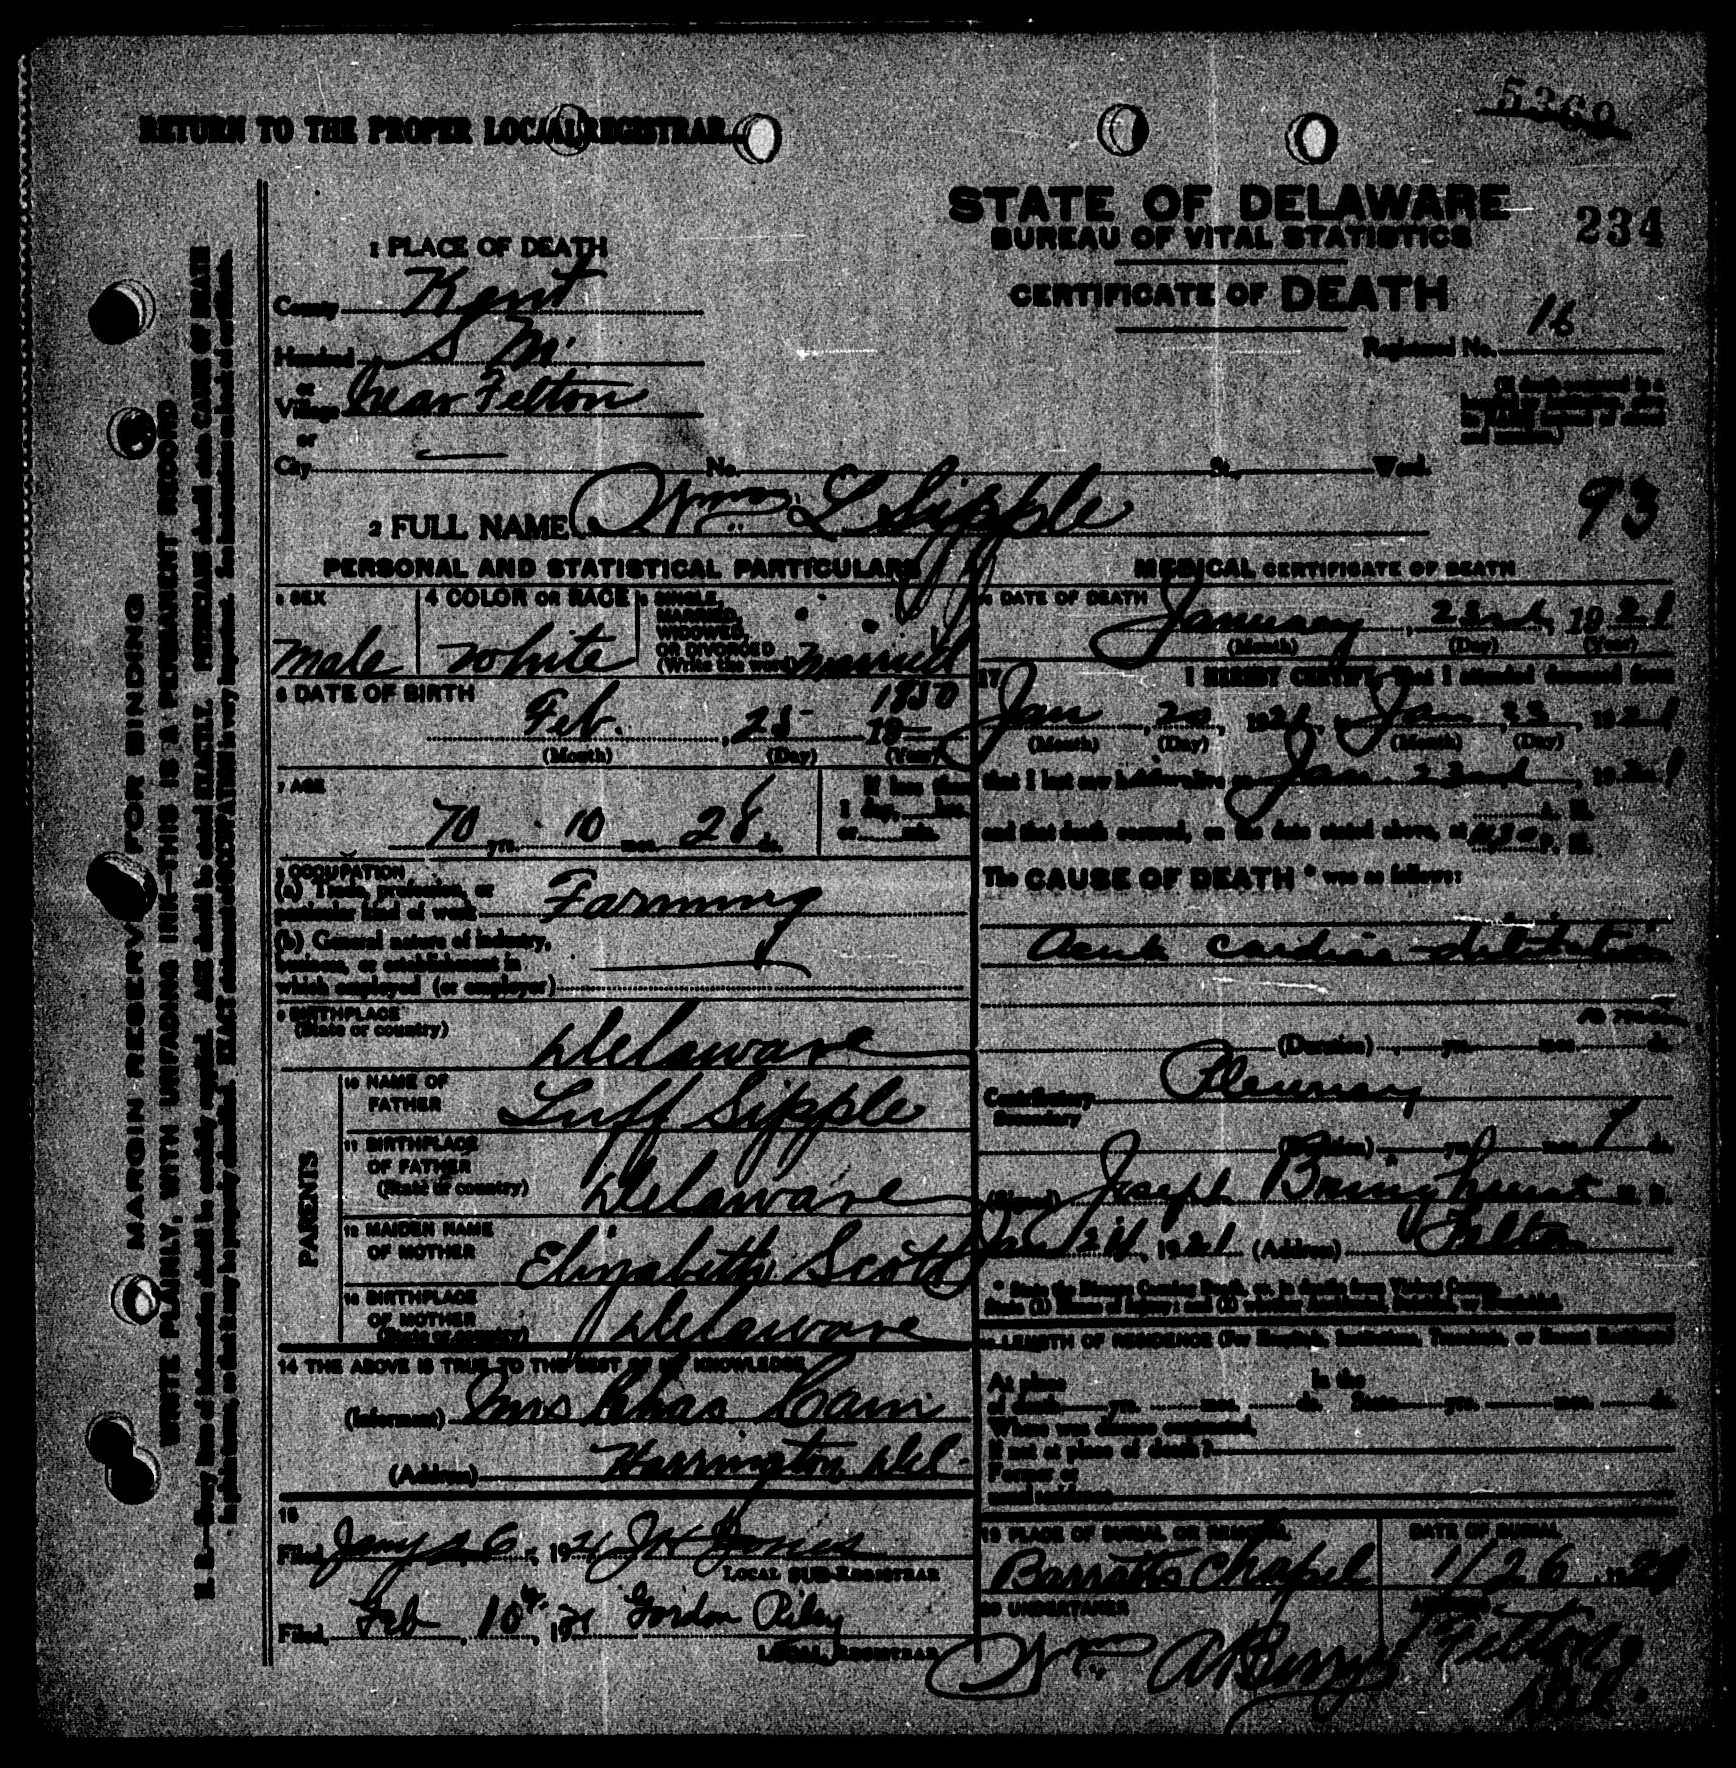 5369
RETURN TO THE PROPER LOCAL REGISTRAR
STATE OF DELAWARE
BUREAU OF VITAL STATISTICS
234
CERTIFICATE OF DEATH
Registered No. 16
1 PLACE OF DEATH
County Kent
Hundred S M.
or
Village Near Felton
or
City No. St., Ward.
2 FULL NAME Wm. L Sipple
93
MARGIN RESERVED FOR BINDING
WRITE PLAINLY, WITH UNFADING INK—THIS IS A PERMANENT RECORD
PERSONAL AND STATISTICAL PARTICULARS
3 SEX
male
4 COLOR OR RACE
white
5 SINGLE,
MARRIED,
WIDOWED,
OR DIVORCED
(Write the word) married
6 DATE OF BIRTH
Feb. 25 1850
(Month) (Day) (Year)
7 AGE
70 yrs. 10 mos. 28 ds.
If less than
1 day, hrs.
or min.
8 OCCUPATION
(a) Trade, profession, or
particular kind of work Farming
(b) General nature of industry,
business, or establishment in
which employed (or employer)
9 BIRTHPLACE
(State or country) Delaware
PARENTS
10 NAME OF
FATHER Luff Sipple
11 BIRTHPLACE
OF FATHER
(State or country) Delaware
12 MAIDEN NAME
OF MOTHER Elizabeth Scott
13 BIRTHPLACE
OF MOTHER
(State or country) Delaware
14 THE ABOVE IS TRUE TO THE BEST OF MY KNOWLEDGE
(Informant) Mrs Chas Cain
(Address) Harrington Del.
15
Filed Jany 26, 1921 J H Jones
LOCAL SUB-REGISTRAR
Filed, Feb, 10th, 1921 Gordon Riley
LOCAL REGISTRAR
MEDICAL CERTIFICATE OF DEATH
16 DATE OF DEATH
January, 23rd, 1921
(Month) (Day) (Year)
17 I HEREBY CERTIFY, that I attended deceased from
Jan, 1921, Jan, 23, 1921
(Month) (Day) (Month) (Day)
that I last saw alive on Jan 23rd, 1921
A. M.
and that death occurred, on the date stated above, at P. M.
The CAUSE OF DEATH * was as follows:
Acute cardiac dilatation
(Duration) yrs. mos. ds.
Contributory Pleurisy
Secondary
(Duration) yrs. mos. 7 ds.
(Signed) Joseph Bringhurst M. D.
Jan 24, 1921 (Address) Felton
* State the Disease Causing Death, or, in deaths from Violent Causes,
18 LENGTH OF RESIDENCE (For Hospitals, Institutions, Transients, or Recent Residents)
At place In the
of death yrs. mos. ds. State yrs. mos. ds.
Where was disease contracted,
If not at place of death?
Former or
usual residence
19 PLACE OF BURIAL OR REMOVAL
Barratts Chapel
DATE OF BURIAL
1/26, 1921
20 UNDERTAKER
Wm A Berry
ADDRESS
Felton
Del.